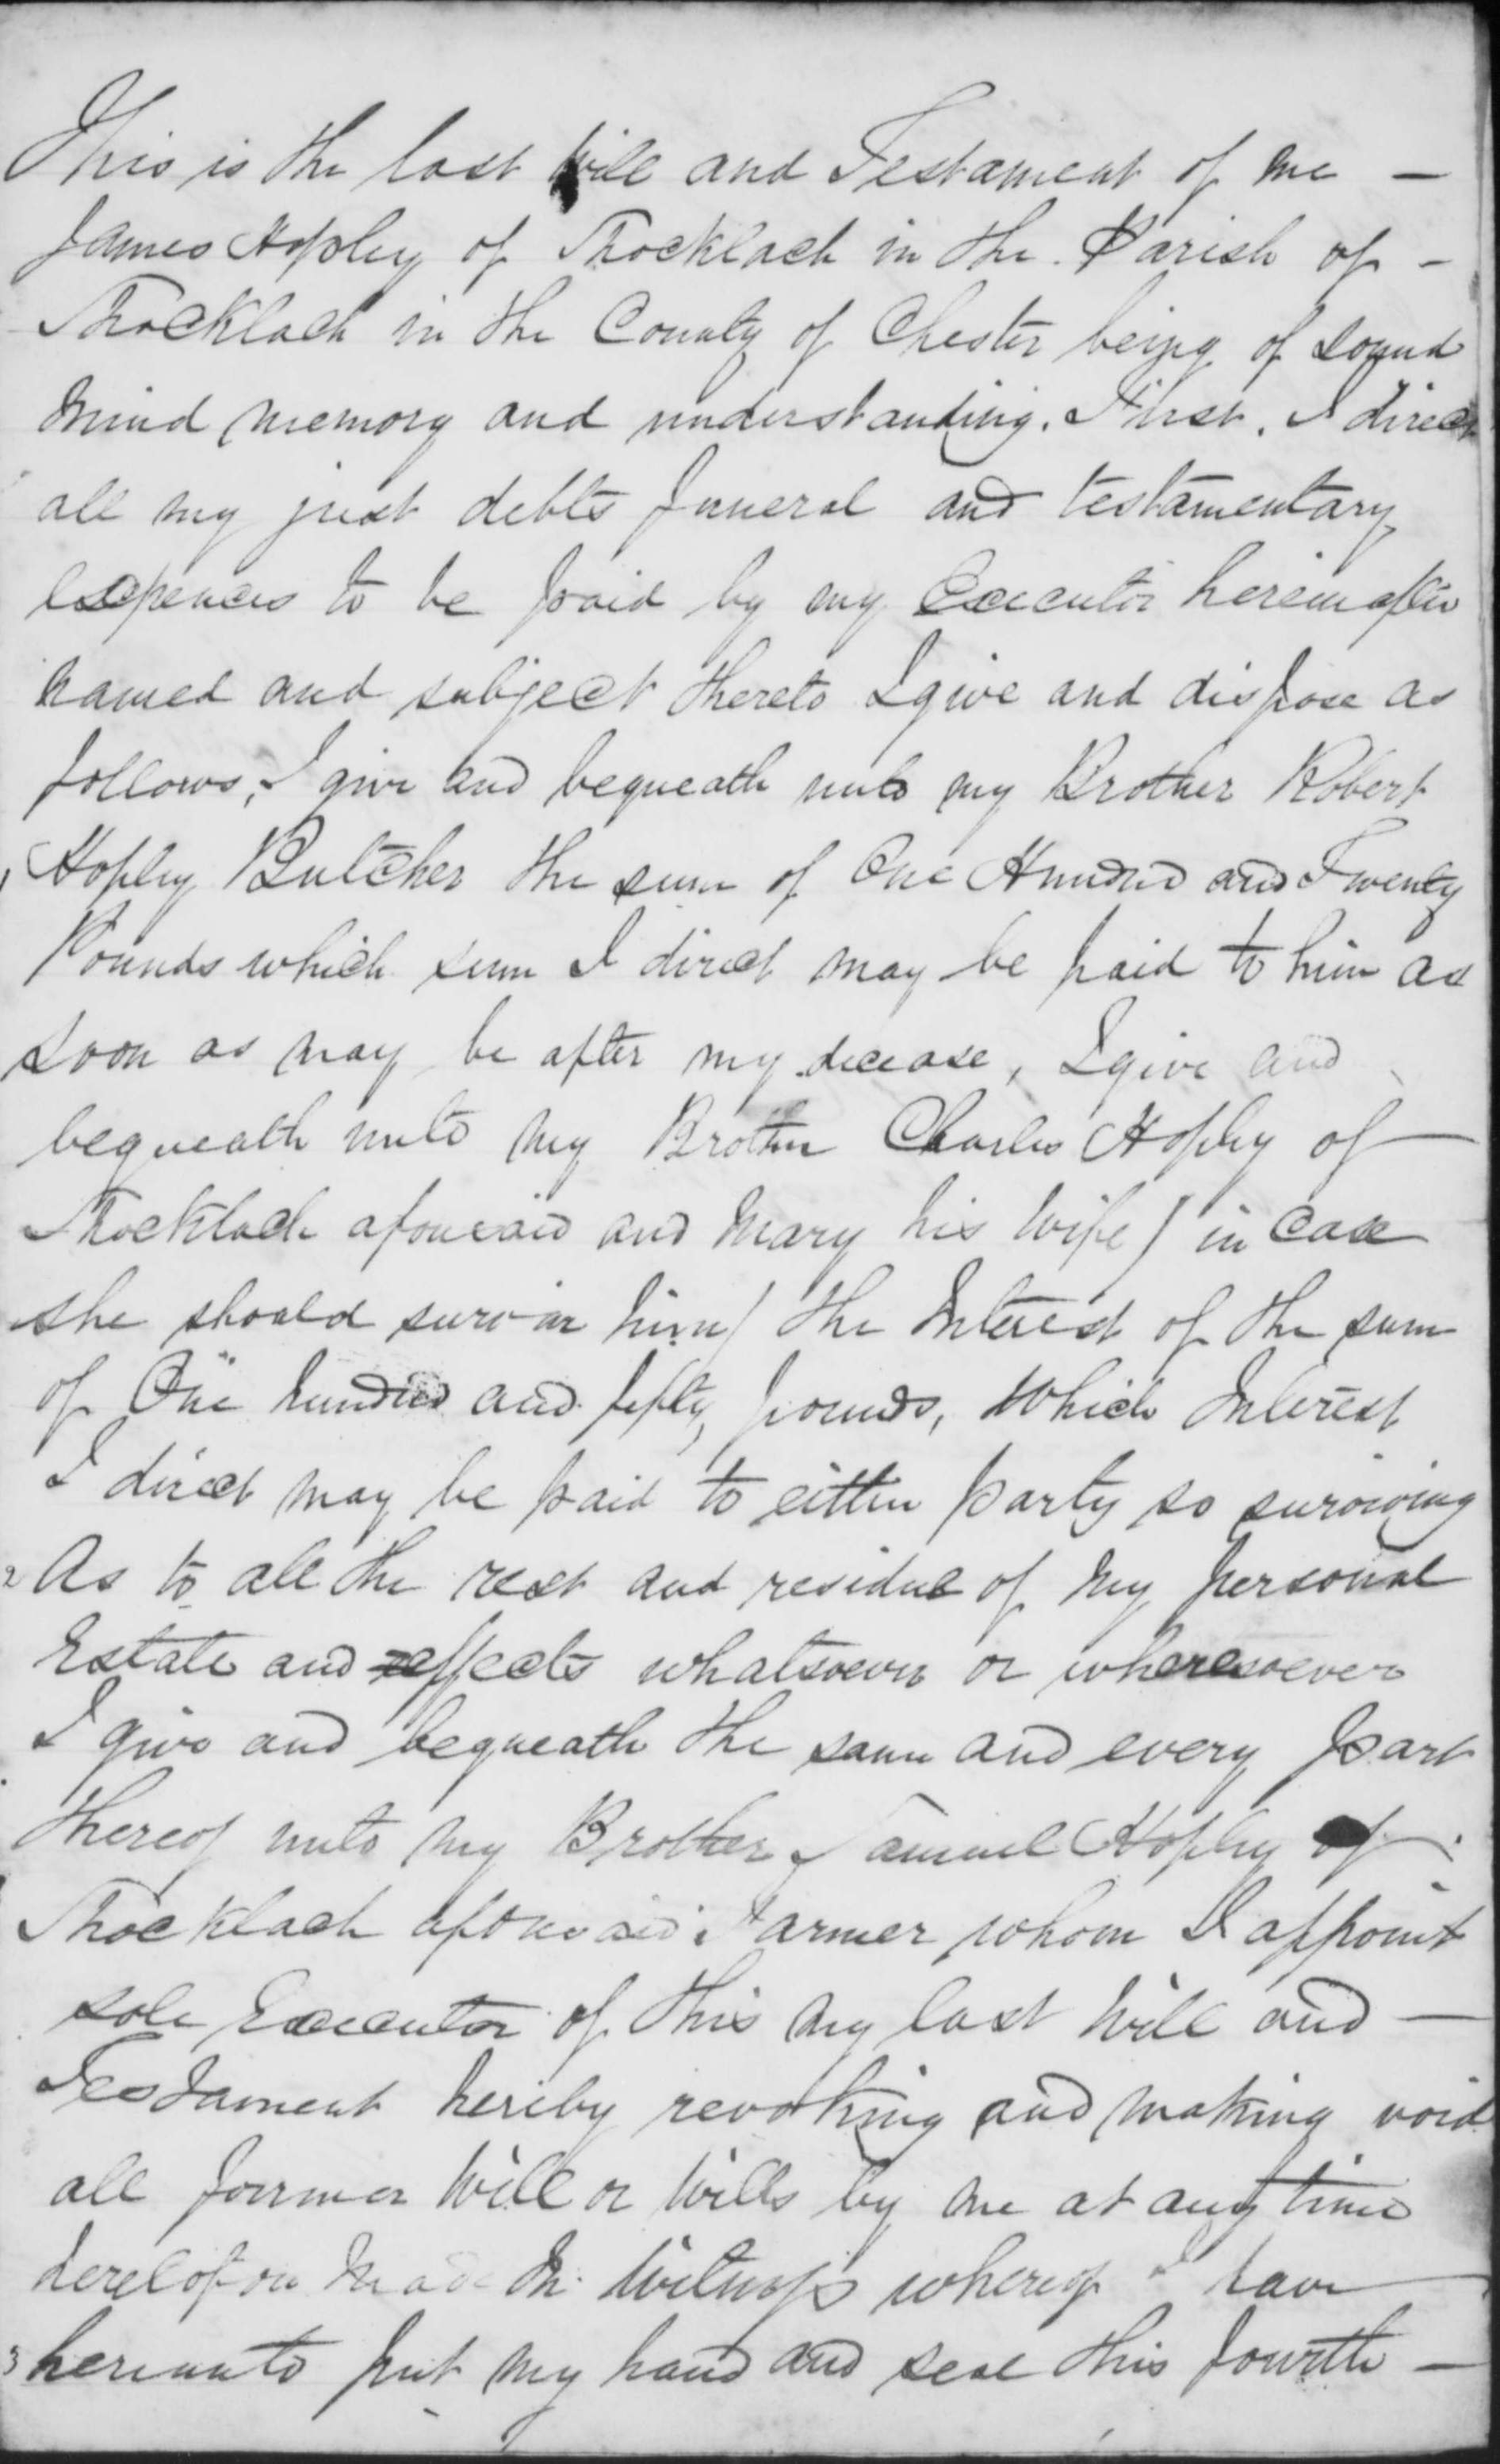 This is the last Will and Testament of me —
James Hopley of Shocklach in the Parish of –
Shocklach in the County of Chester being of sound
mind memory and understanding. First, I direct
all my just debts funeral and testamentary
expences to be paid by my Executor hereinafter
named and subject thereto I give and dispose as
follows, I give and bequeath unto my Brother Robert
Hopley Butcher the sum of One Hundred and Twenty
Pounds which sum I direct may be paid to him as
soon as may be after my decease, I give and
bequeath unto my Brother Charles Hopley of —
Shocklach aforesaid and Mary his wife / in case
she should survive him / the Interest of the sum
of One hundred and fifty pounds, which Interest
I direct may be paid to either party so surviving
As to all the rest and residue of my personal
Estate and effects whatsoever or wheresoever
I give and bequeath the same and every part
thereof unto my Brother Samuel Hopley of —
Shocklach aforesaid Farmer whom I appoint
sole Executor of this my last Will and —
Testament hereby revoking and making void
all former Will or Wills by me at any time
heretofore made In Witness whereof I have
3 hereunto put my hand and seal this fourth —